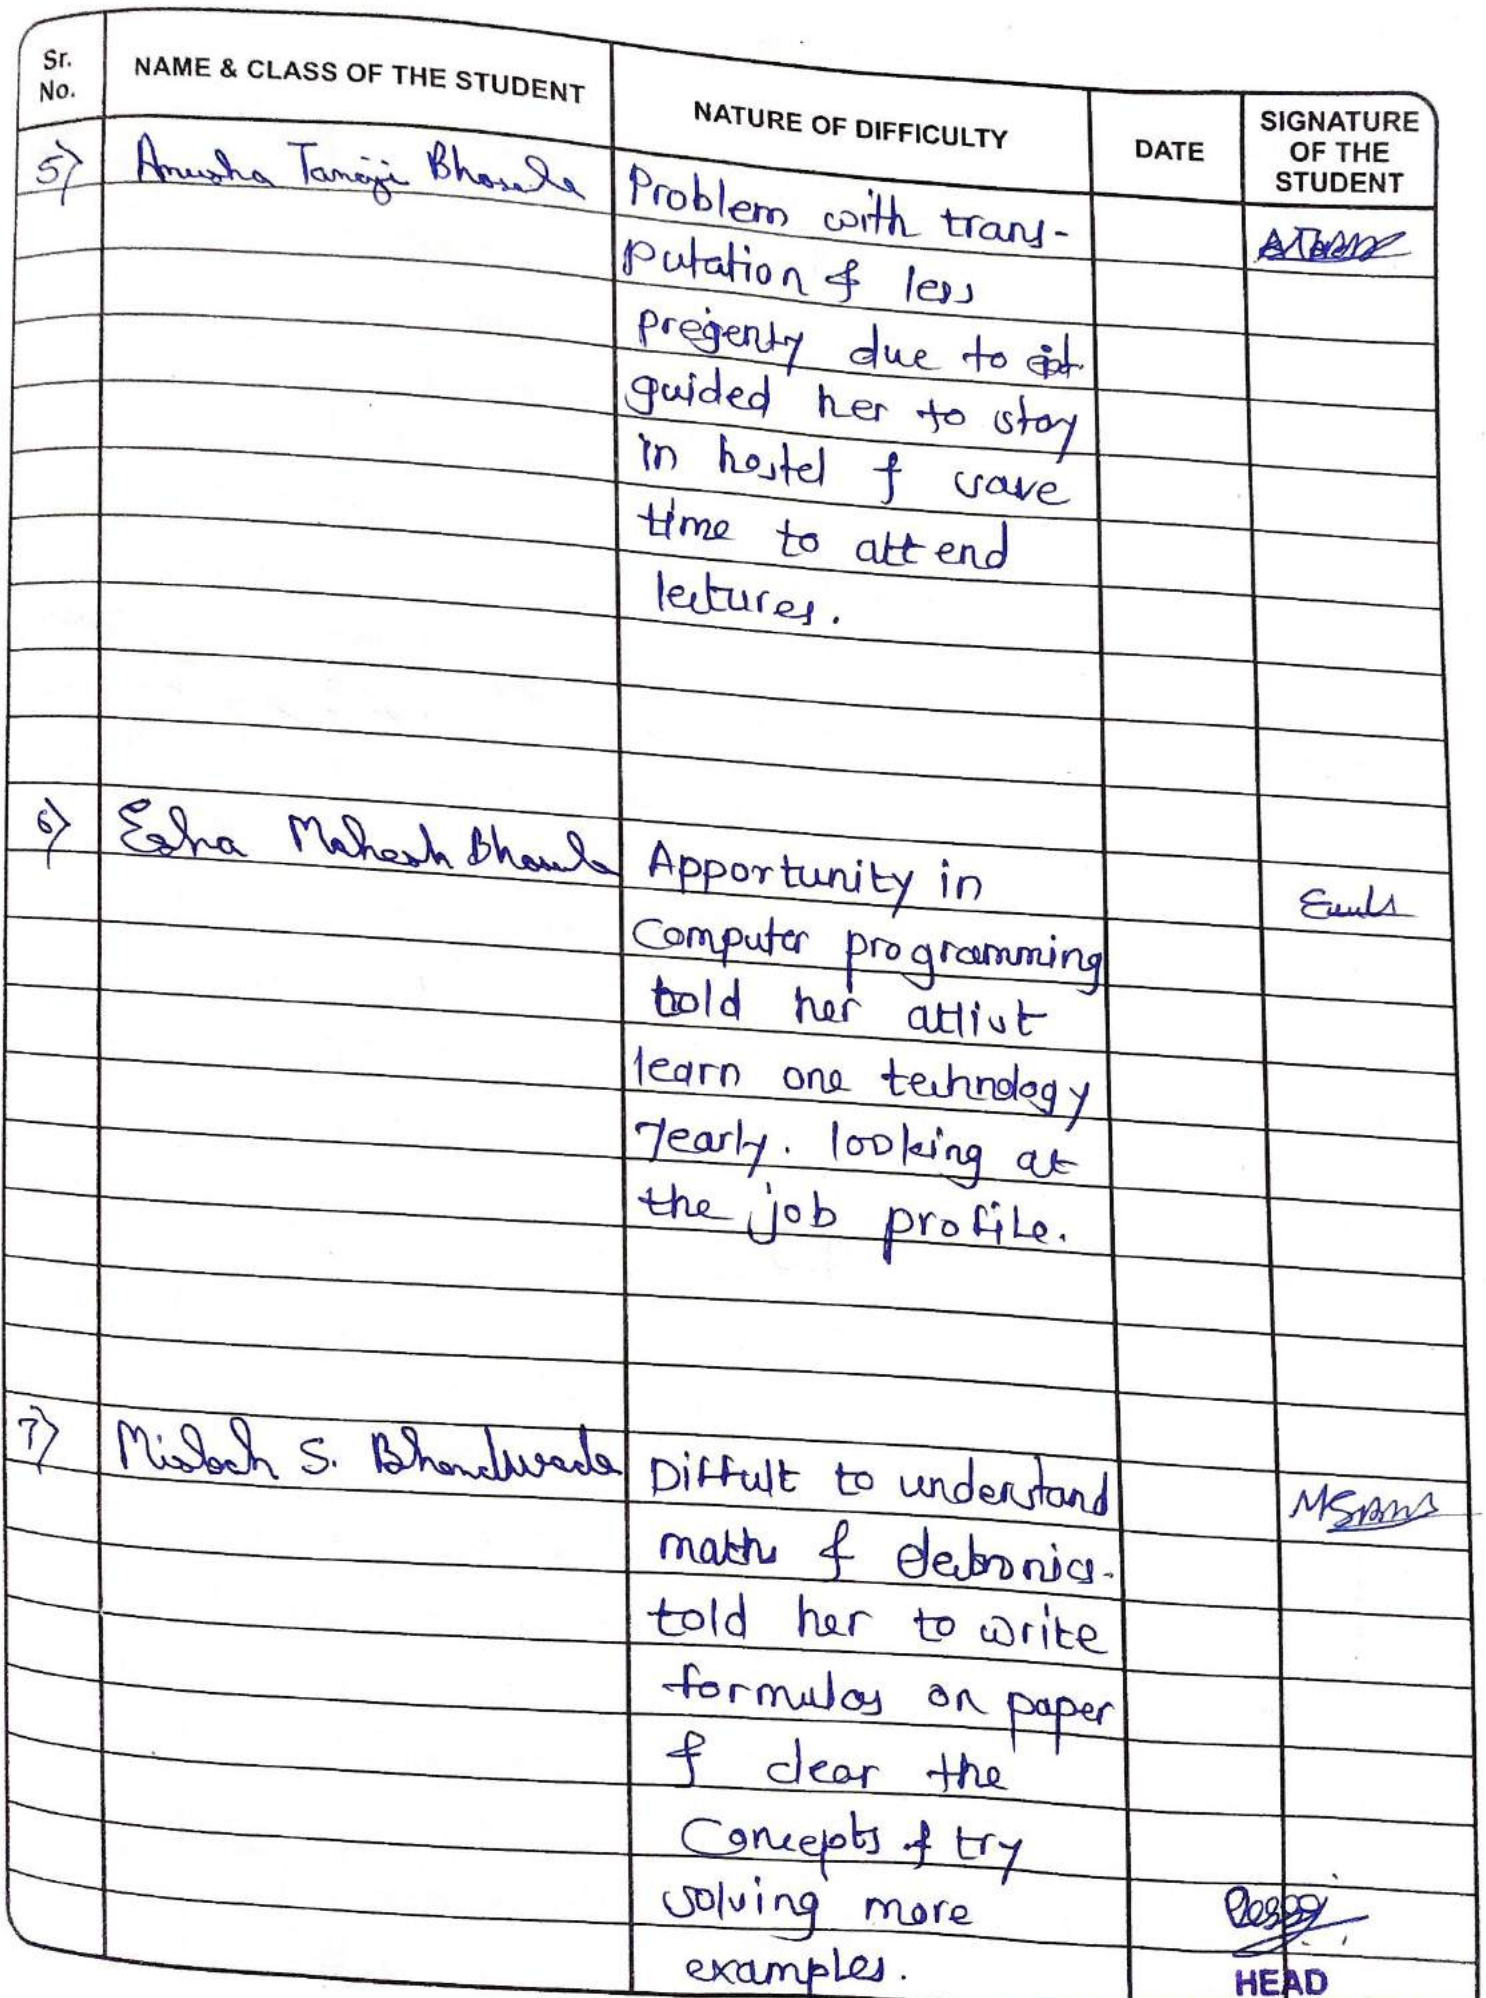 Sr. No. NAME & CLASS OF THE STUDENT NATURE OF DIFFICULTY DATE SIGNATURE OF THE STUDENT
5) Anusha Tanaji Bhosale Problem with trans-
putation & less
pregenty due to
guided her to stay
in hostel & save
time to attend
lectures.
6) Esha Mahesh Bhosale Apportunity in
Computer programming
told her atlist
learn one technology
Yearly. looking at
the job profile.
7) Misbah S. Bhandwade Diffult to understand
maths & eletronics.
told her to write
formulas on paper
& clear the
Concepts & try
solving more
examples.
HEAD